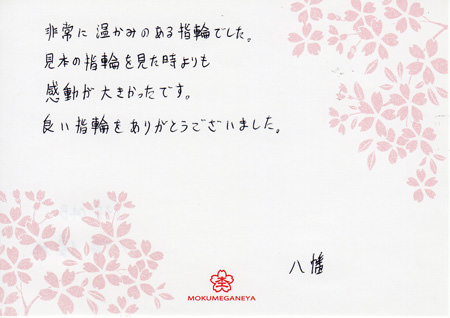 非常に温かみのある指輪でした。
見本の指輪を見た時よりも
感動が大きかったです。
良い指輪をありがとうございました。
八幡
MOKUMEGANEYA